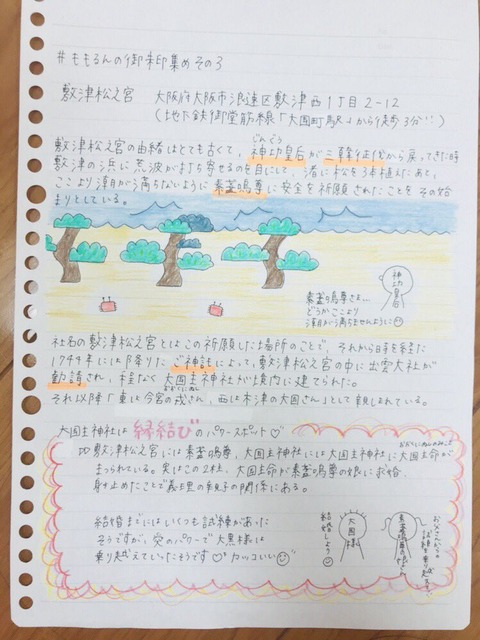 #ももるんの御朱印集めその3
敷津松之宮 大阪府大阪市浪速区敷津西1丁目2-12
(地下鉄御堂筋線「大国町駅」から徒歩3分!!)
じんぐう
敷津松之宮の由緒はとても古くて、神功皇后が三韓征伐から戻ってきた時
敷津の浜に荒波が打ち寄せるのを目にして、渚に松を3本植えたあて、
ここより潮が満ちないように素盞嗚尊に安全を祈願されたことをその始
まりとしている。
神功皇后
素盞嗚尊さま…
どうかここより
潮が満ちませんように
社名の敷津松之宮とはこの祈願した場所のことで、それから時を経た
1744年には降りたご神託によって、敷津松之宮の中に出雲大社が
勧請され、程なく大国主神社が境内に建てられた。
おおくにぬし
それ以降「東は今宮の戎さん、西は木津の大国さん」として親しまれている。
大国主神社は縁結びのパワースポット♡
おおくにぬしのみこと
敷津松之宮には素盞嗚尊、大国主神社には大国主命が
まつられている。実はこの2柱、大国主命が素盞嗚尊の娘に求婚
射止めたことで義理の親子の関係にある。
結婚までにはいくつも試練があった
そうですが、愛のパワーで大黒様は
乗り越えていったそうです♡カッコいい
結婚しよう
大国様
お父さんからの試練を乗り越えて